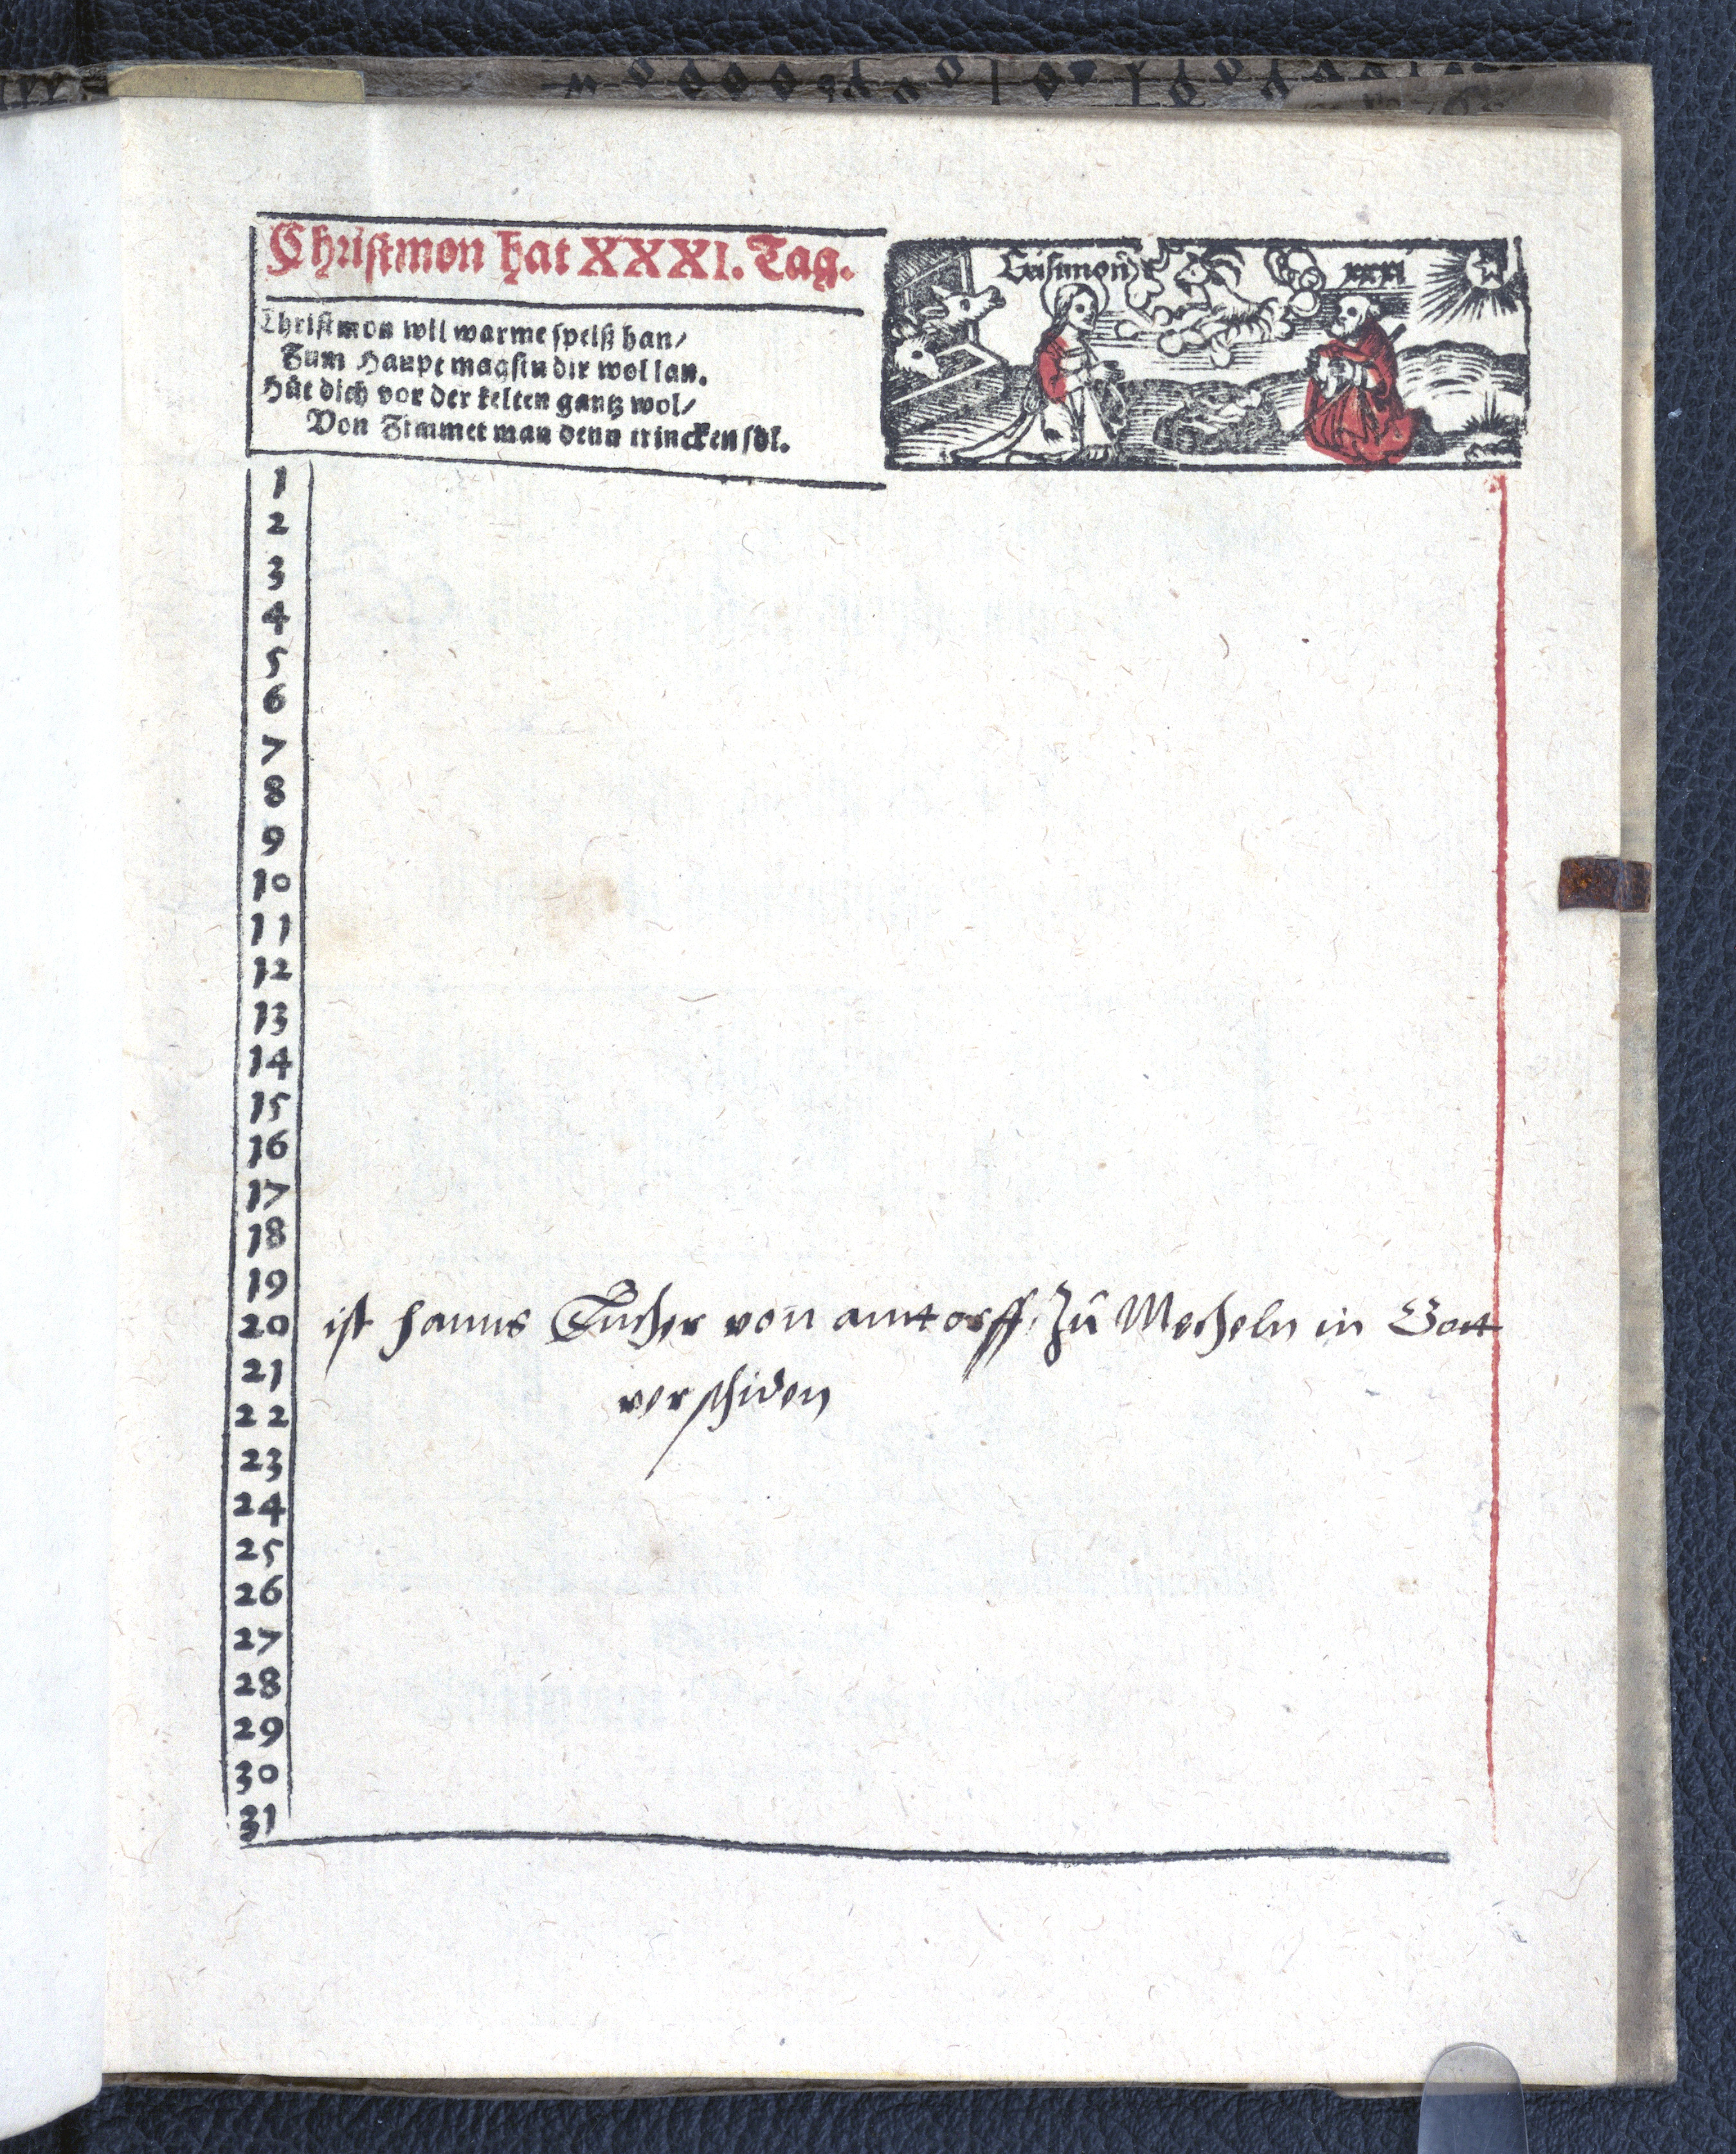 Christmon hat XXXI. Tag.
Christmon wil warme speiß han/
Zum Haupt magstu dir wol lan.
Hüt dich vor der kelten gantz wol/
Von Zimmet man denn trincken sol.
Cristmon xxxi
1
2
3
4
5
6
7
8
9
10
11
12
13
14
15
16
17
18
19
20 ist Hanns Tucher von antorff, Zu Mecheln in Gott
21
verschiden
22
23
24
25
26
27
28
29
30
31